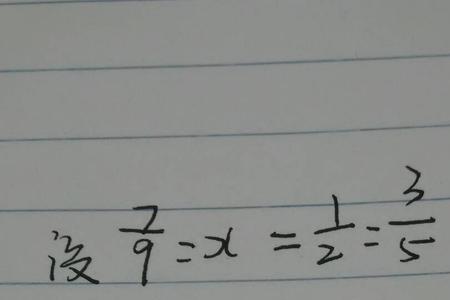 没 7/9 = x = 1/2 = 3/5